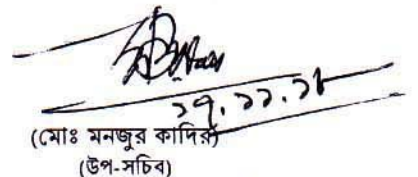 ২৭.১১.১৮
(মোঃ মনজুর কাদির)
(উপ-সচিব)